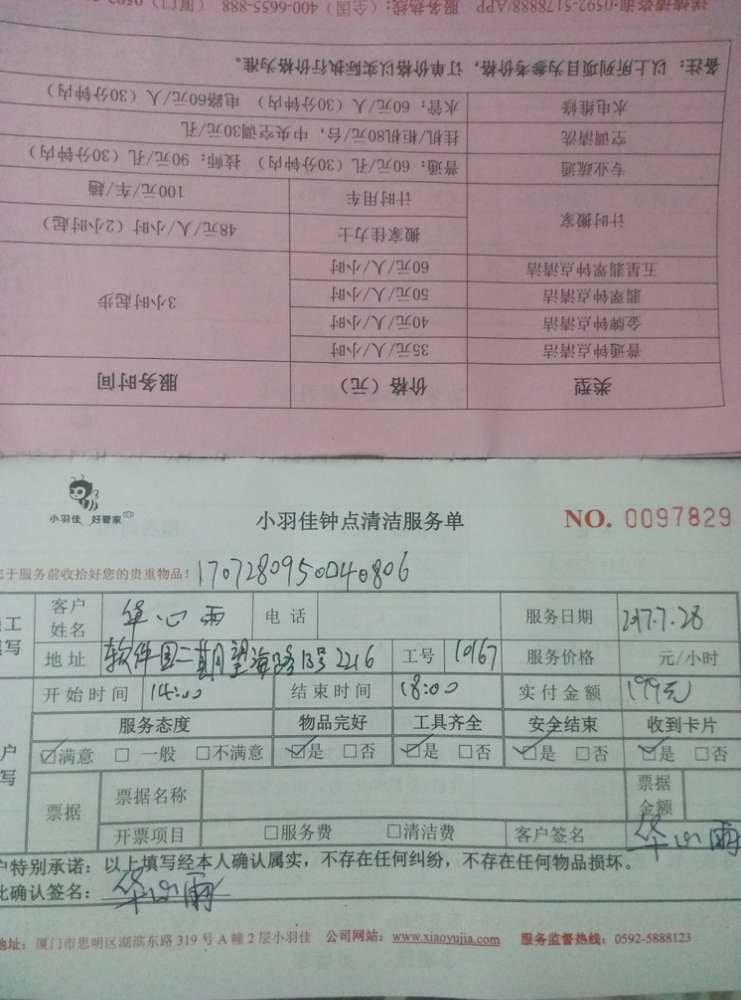 类型 价格（元） 服务时间
普通钟点清洁 35元/人/小时 3小时起步
金牌钟点清洁 40元/人/小时
翡翠钟点清洁 50元/人/小时
五星翡翠钟点清洁 60元/人/小时
计时搬家 搬家佳力士 48元/人/小时（2小时起）
计时用车 100元/车/趟
专业疏通 普通：60元/孔（30分钟内） 技师：90元/孔（30分钟内）
空调清洗 挂机/柜机80元/台，中央空调30元/孔
水电维修 水管：60元/人（30分钟内） 电路60元/人（30分钟内）
备注：以上所列项目为参考价格，订单价格以实际执行价格为准。
服务热线：（全国）400-6655-888 （厦门）0592-
小羽佳 好管家
小羽佳钟点清洁服务单
NO. 0097829
于服务前收拾好您的贵重物品！
1707280950040806
客户姓名 华心雨 电话 服务日期 2017.7.28
地址 软件园二期望海路13号2216 工号 10167 服务价格 元/小时
开始时间 14:00 结束时间 18:00 实付金额 199元
服务态度 物品完好 工具齐全 安全结束 收到卡片
☑满意 □一般 □不满意 ☑是 □否 ☑是 □否 ☑是 □否 ☑是 □否
票据 票据名称 票据金额
开票项目 □服务费 □清洁费 客户签名 华心雨
户特别承诺：以上填写经本人确认属实，不存在任何纠纷，不存在任何物品损坏。
此确认签名：华心雨
地址：厦门市思明区湖滨东路319号A幢2层小羽佳 公司网站：www.xiaoyujia.com 服务监督热线：0592-5888123